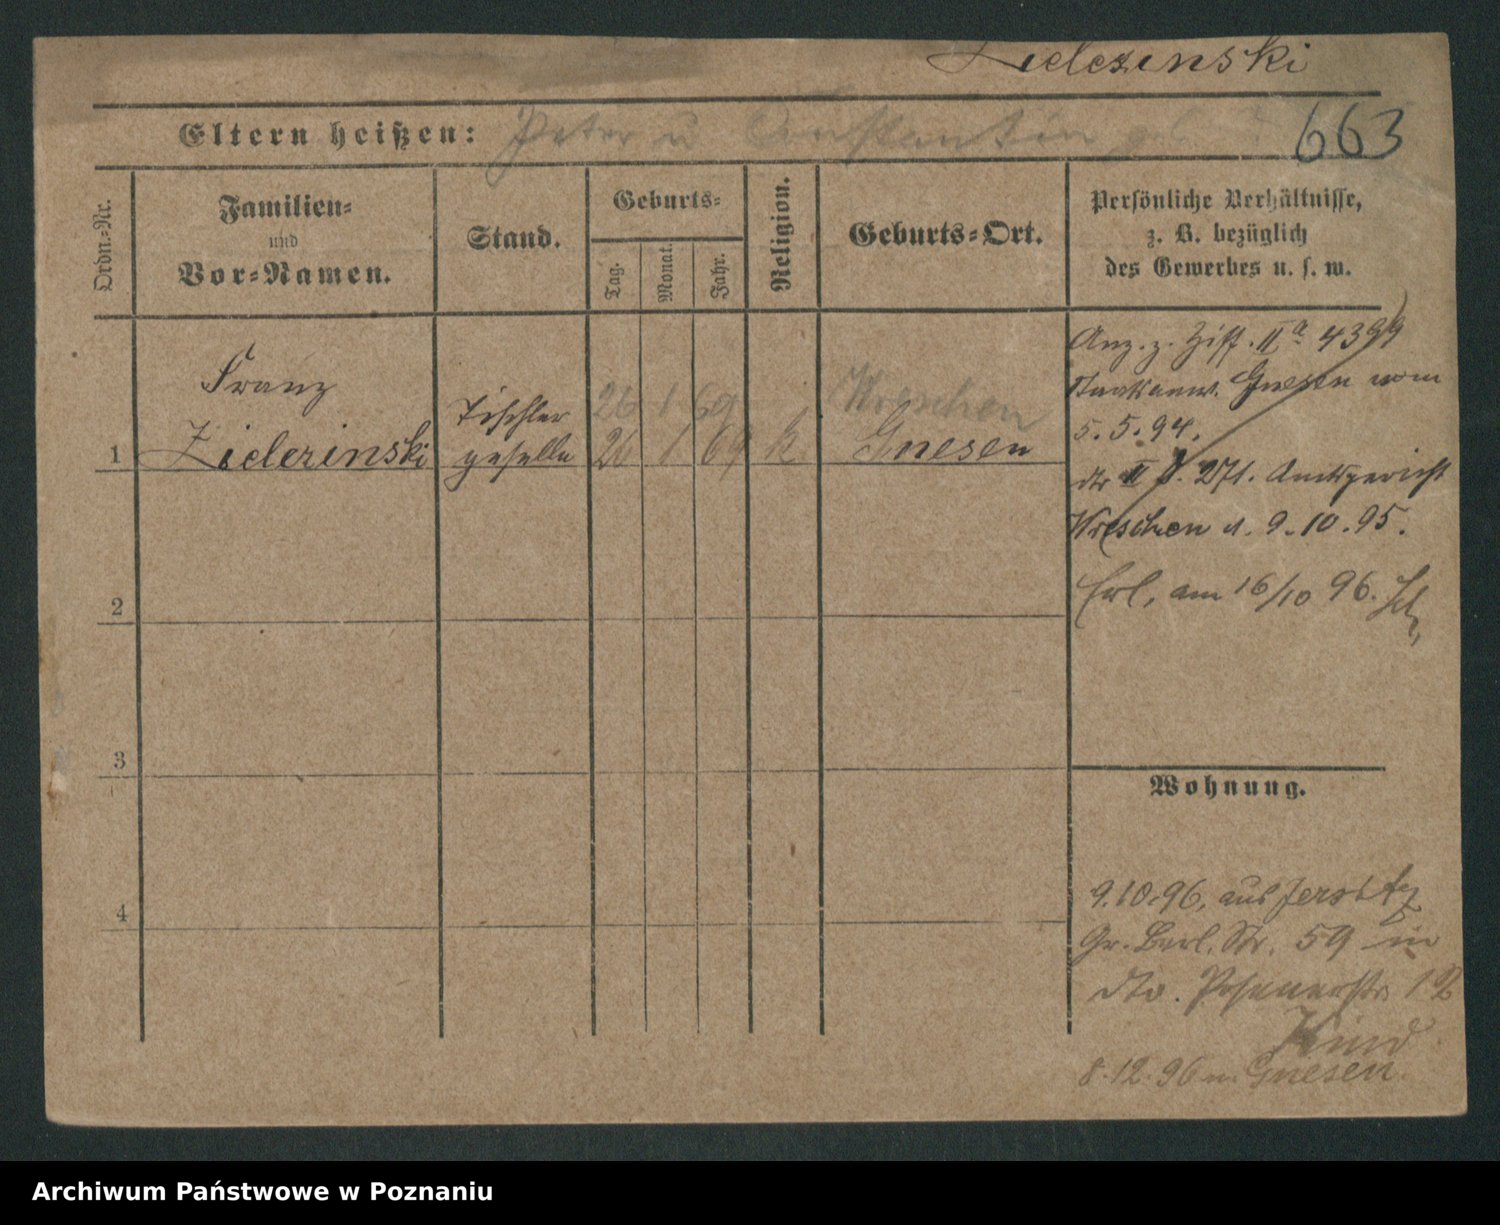 Zielezinski
Eltern heißen: Peter u Constantin geb.
663
Ordn.-Nr.
Familien-
und
Vor-Namen.
Stand.
Geburts-
Tag.
Monat.
Jahr.
Religion.
Geburts-Ort.
Persönliche Verhältnisse,
z. B. bezüglich
des Gewerbes u. s. w.
Franz
1 Zielezinski
Tischler
geselle
26 1 69
26 1 69
k
Wreschen
Gnesen
Anz. z. Ziff. IIa 4399
Staatsanw. Gnesen vom
5.5.94.
dto II 271. Amtsgericht
Wreschen v. 9.10.95.
Erl. am 16/10 96.
2
3
4
Wohnung.
9.10.96. aus Jersitz
Gr. Berl. Str. 59 in
dto. Posenerstr. 12
8.12.96 n. Gnesen
Archiwum Państwowe w Poznaniu